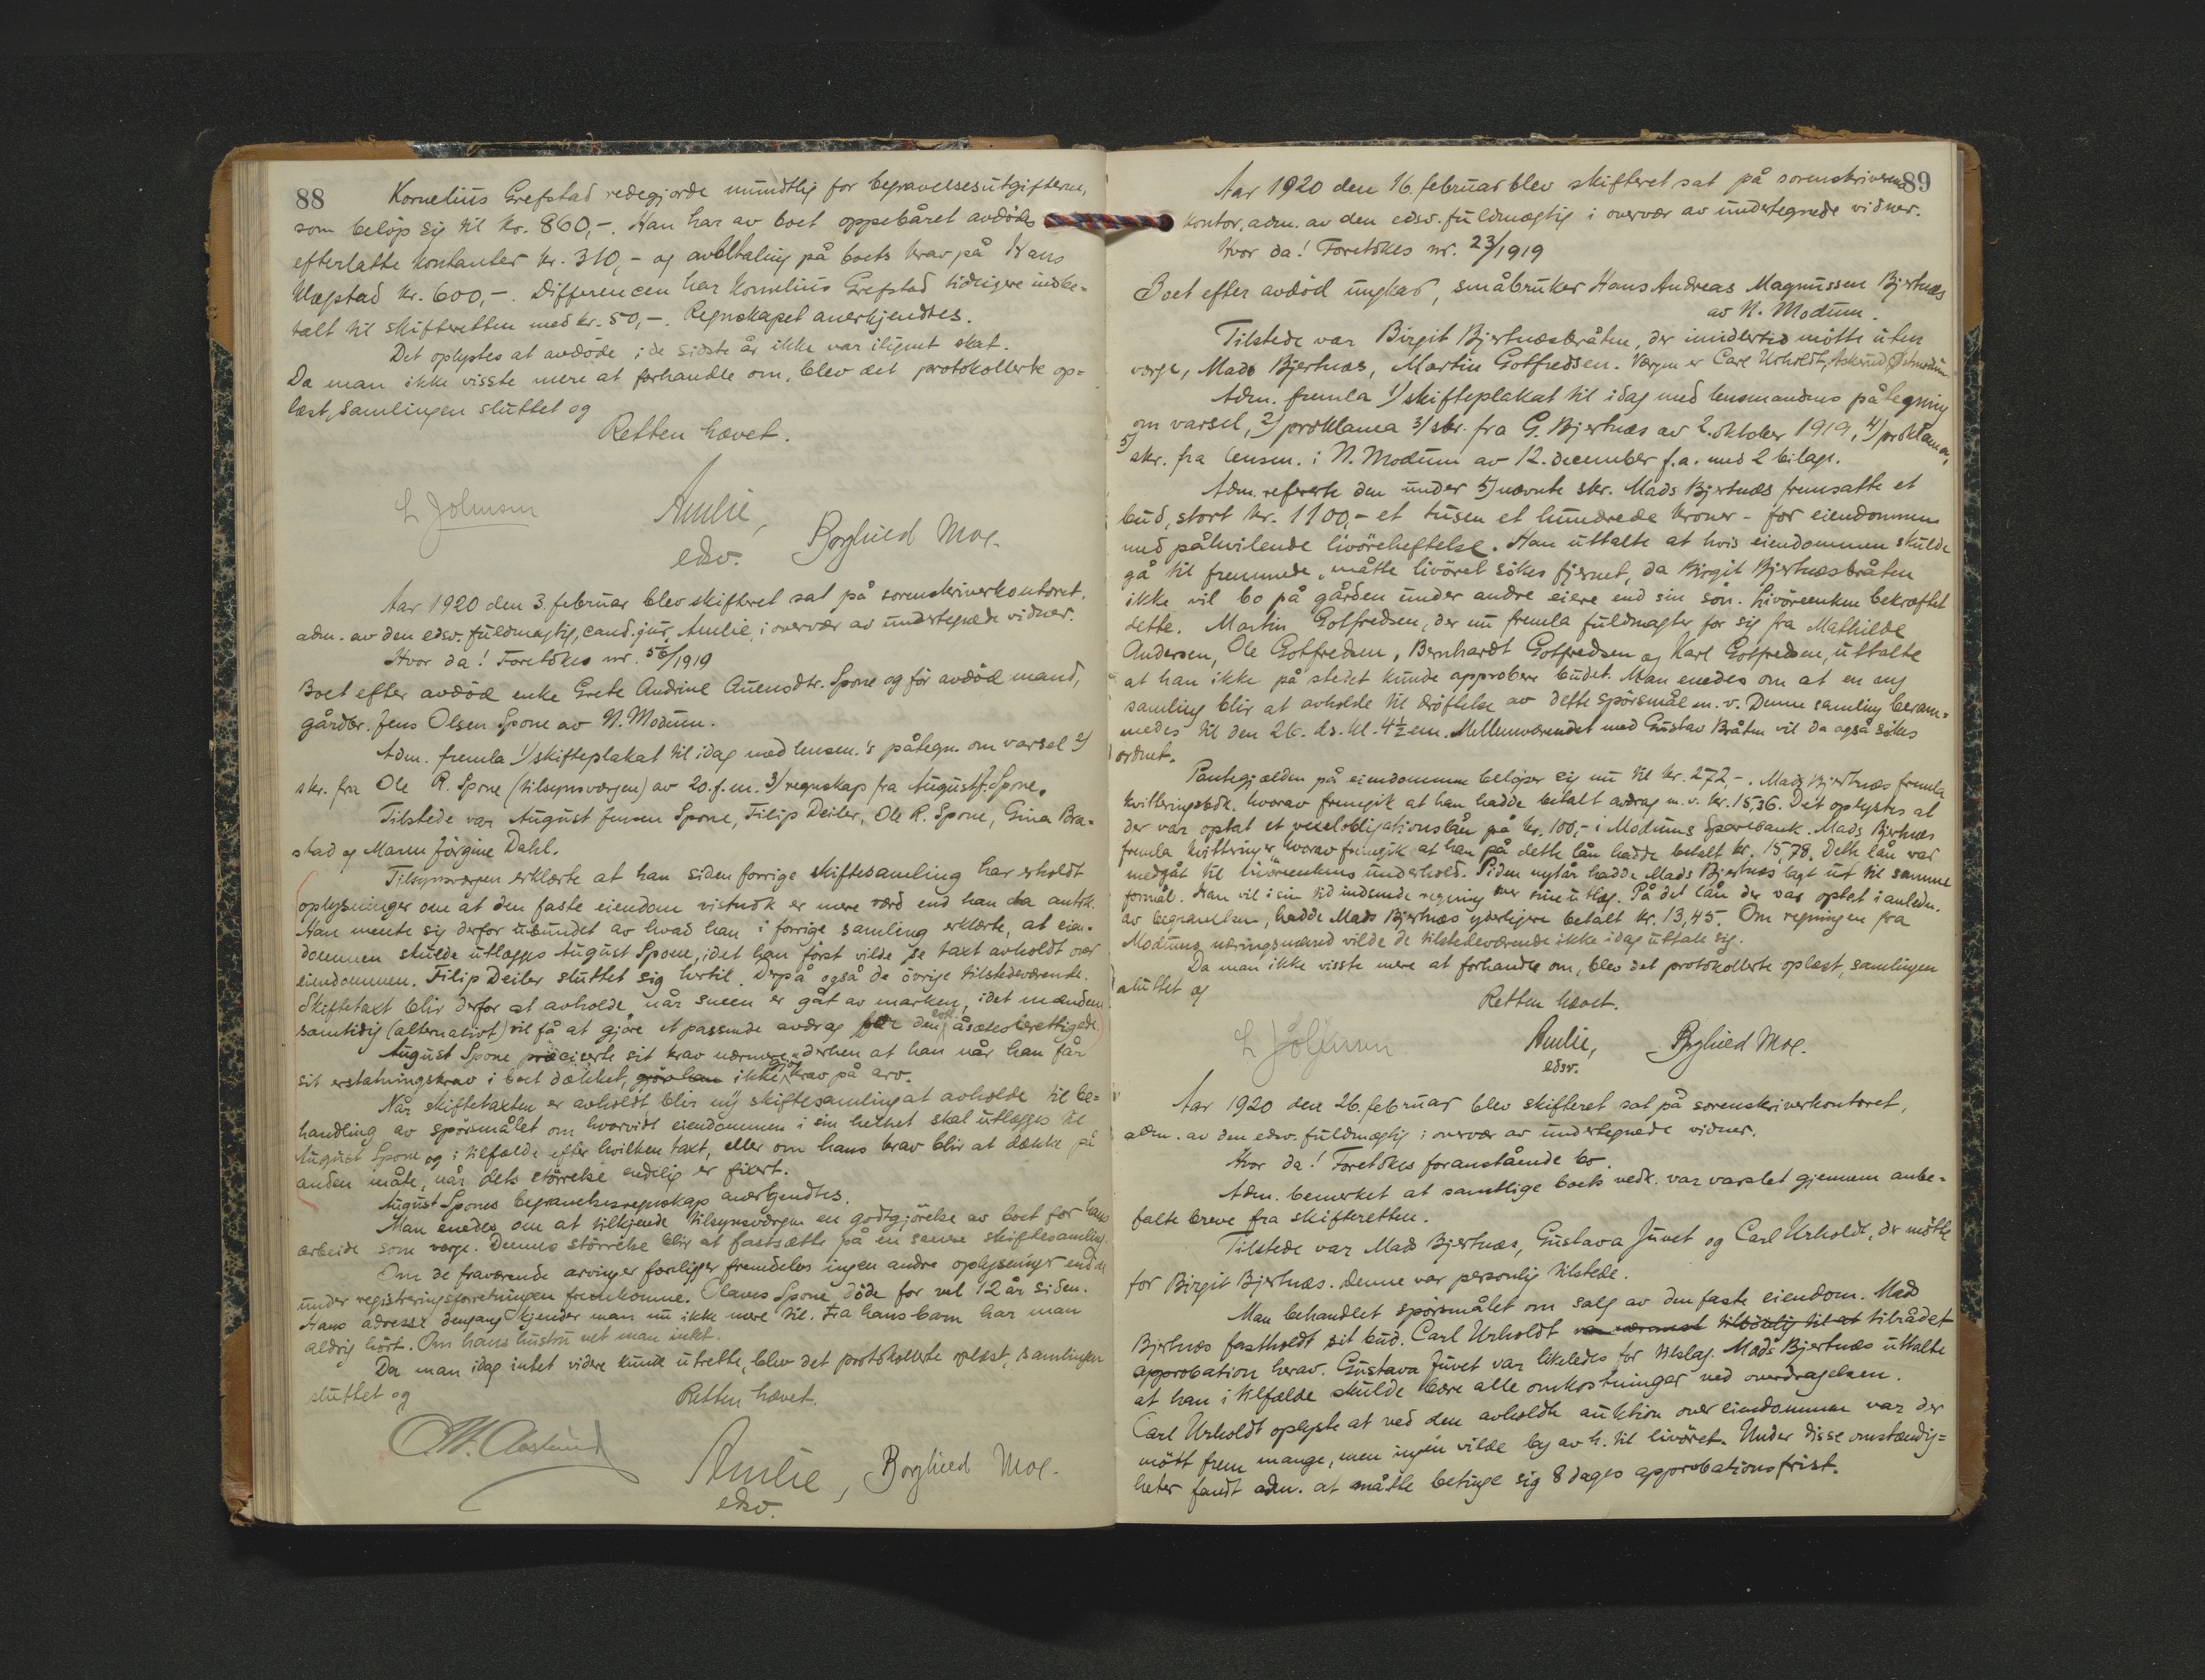 88
Kornelius Grefstad redegjorde mundtlig for begravelsesutgifterne,
som beløp sig til kr. 860,-. Han har av boet oppebåret avdødes
efterlatte kontanter kr. 310,- og avbetaling på boets krav på Hans
kr. 600,-. Differencen har Kornelius Grefstad tidligere indbe-
talt til skifteretten med kr. 50,-. Regnskapet anerkjendtes.
Det oplystes at avdøde i de sidste år ikke var ilignet skat.
Da man ikke visste mere at forhandle om, blev det protokollerte op-
læst, samlingen sluttet og
Retten hævet.
L Johnsen
Amlie,
edsv.
Borghild Moe.
Aar 1920 den 3. februar blev skifteret sat på sorenskriverkontoret,
adm. av den edsv. fuldmægtig, cand. jur. Amlie, i overvær av undertegnede vidner.
Hvor da! Foretokes nr. 56/1919
Boet efter avdød enke Grete Andrine Auensdtr. Spone og før avdød mand,
gårdbr. Jens Olsen Spone av N. Modum.
Adm. fremla 1) skifteplakat til idag med lensm.'s påtegn. om varsel 2)
skr. fra Ole R. Spone (tilsynsværgen) av 20. f.m. 3) regnskap fra August J. Spone.
Tilstede var August Jensen Spone, Filip Deiler, Ole R. Spone, Gina Bra-
stad og Maren Jørgine Dahl.
Tilsynsværgen erklærte at han siden forrige skiftesamling har erholdt
oplysninger om at den faste eiendom vistnok er mere værd end han da antok.
Han mente sig derfor ubundet av hvad han i forrige samling erklærte, at eien-
dommen skulde utlægges August Spone, idet han først vilde se takt avholdt over
eiendommen. Filip Deiler sluttet sig hertil. Derpå også de øvrige tilstedeværende.
Skiftetakt blir derfor at avholde når sneen er gåt av marken, idet mændene
samtidig (alternativt) vil få at gjøre et passende avdrag for den evt. åsætesberettigede.
August Spone præciserte sit krav nærmere derhen at han når han får
sit erstatningskrav i boet dækket, gjør han ikke gjør krav på arv.
Når skiftetaxten er avholdt, blir ny skiftesamling at avholde til be-
handling av spørsmålet om hvorvidt eiendommen i sin helhet skal utlægges til
August Spone og i tilfælde efter hvilken taxt, eller om hans krav blir at dække på
anden måte, når dets størrelse endelig er fixert.
August Spones begravelsesregnskap anerkjendtes.
Man enedes om at tilkjende tilsynsværgen en godtgjørelse av boet for hans
arbeide som værge. Dennes størrelse blir at fastsætte på en senere skiftesamling.
Om de fraværende arvinger foreligger fremdeles ingen andre oplysninger end de
under registreringsforretningen fremkomne. Olaves Spone døde for vel 12 år siden.
Hans adresse dengang kjender man nu ikke mere til. Fra hans barn har man
aldrig hørt. Om hans hustru vet man intet.
Da man idag intet videre kunde utrette, blev det protokollerte oplæst, samlingen
sluttet og
Retten hævet.
Amlie,
edsv.
Borghild Moe.
89
Aar 1920 den 16. februar blev skifteret sat på sorenskriverens
kontor, adm. av den edsv. fuldmægtig i overvær av undertegnede vidner.
Hvor da! Foretokes nr. 23/1919
Boet efter avdød ungkar, småbruker Hans Andreas Magnussen Bjertnæs
av N. Modum.
Tilstede var Birgit Bjertnæsbråten, der imidlertid møtte uten
værge, Mads Bjertnæs, Martin Gotfredsen. Værgen er Carl Urholdt, Askerud, Østmodum.
Adm. fremla 1) skifteplakat til idag med lensmandens påtegning
om varsel, 2) proklama 3) skr. fra G. Bjertnæs av 2. oktober 1919, 4) proklama,
5) skr. fra lensm. i N. Modum av 12. december f.a. med 2 bilag.
Adm. refererte den under 5) nævnte skr. Mads Bjertnæs fremsatte et
bud, stort kr. 1100,- et tusen et hundrede kroner - for eiendommen
med påhvilende livøreheftelse. Han uttalte at hvis eiendommen skulde
gå til fremmede, måtte livøret søkes fjernet, da Birgit Bjertnæsbråten
ikke vil bo på gården under andre eiere end sin søn. Livøreenken bekræftet
dette. Martin Gotfredsen, der nu fremla fuldmagter for sig fra Mathilde
Andersen, Ole Gotfredsen, Bernhardt Gotfredsen og Karl Gotfredsen, uttalte
at han ikke på stedet kunde approbere budet. Man enedes om at en ny
samling blir at avholde til drøftelse av dette spørsmål m.v. Denne samling beram-
medes til den 26. ds. kl. 4½ em. Mellemværendet med Gustav Bråten vil da også søkes
ordnet.
Pantegjælden på eiendommen beløper sig nu til kr. 272,-. Mads Bjertnæs fremla
kvitteringsbok, hvorav fremgik at han hadde betalt avdrag m.v. kr. 15,36. Det oplystes at
der var optat et vexelobligationslån på kr. 100,- i Modums Sparebank. Mads Bjertnæs
fremla kvitteringer, hvorav fremgik at han på dette lån hadde betalt kr. 15,78. Dette lån var
medgåt til livøreenkens underhold. Siden nytår hadde Mads Bjertnæs lagt ut til samme
formål. Han vil i sin tid indsende regning over sine utlæg. På det lån der var optat i anledn.
av begravelsen, hadde Mads Bjertnæs yderligere betalt kr. 13,45. Om regningen fra
Modums næringsnævnd vilde de tilstedeværende ikke idag uttale sig.
Da man ikke visste mere at forhandle om, blev det protokollerte oplæst, samlingen
sluttet og
Retten hævet.
L Johnsen
Amlie,
edsv.
Borghild Moe.
Aar 1920 den 26. februar blev skifteret sat på sorenskriverkontoret,
adm. av den edsv. fuldmægtig i overvær av undertegnede vidner.
Hvor da! Foretokes foranstående bo.
Adm. bemerket at samtlige boets vedk. var varslet gjennem anbe-
falte breve fra skifteretten.
Tilstede var Mads Bjertnæs, Gustava Juvet og Carl Urholdt, der møtte
for Birgit Bjertnæs. Denne var personlig tilstede.
Man behandlet spørsmålet om salg av den faste eiendom. Mads
Bjertnæs fastholdt sit bud. Carl Urholdt var nærmest tilbøielig til at tilrådet
approbation herav. Gustava Juvet var likeledes for tilslag. Mads Bjertnæs uttalte
at han i tilfælde skulde bære alle omkostninger ved overdragelsen.
Carl Urholdt oplyste at ved den avholdte auktion over eiendommen var der
møtt frem mange, men ingen vilde by av h. til livøret. Under disse omstændig-
heter fandt adm. at måtte betinge sig 8 dages approbationsfrist.